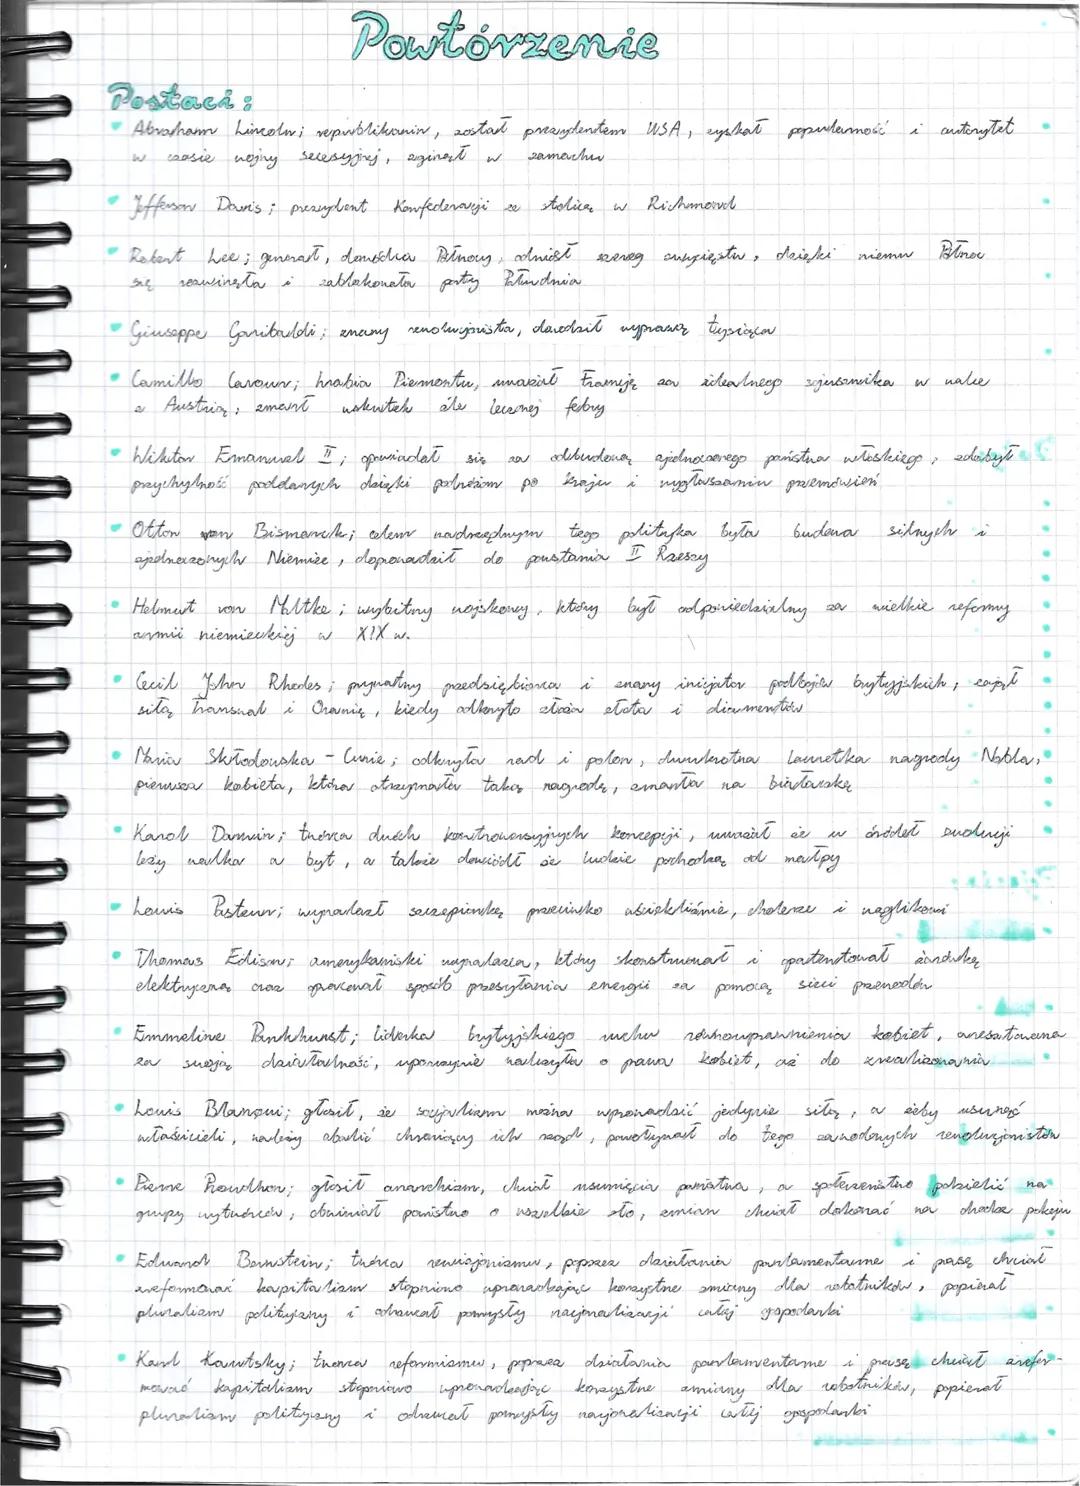 Powtórzenie
Postaci:
Abraham Lincoln; republikanin, został prezydentem USA, zyskał popularność i autorytet
w czasie wojny secesyjnej, zginął w zamachu
Jefferson Davis; prezydent Konfederacji ze stolicą w Richmond
Robert Lee; generał, dowódca Północy, odniósł szereg zwycięstw, dzięki niemu Północ
się rozwinęła i zablokowała porty Południa
Giuseppe Garibaldi; znany rewolucjonista, dowodził wyprawą tysiąca
Camillo Cavour; hrabia Piemontu, uważał Francję za idealnego sojusznika w walce
z Austrią; zmarł wskutek źle leczonej febry
Wiktor Emanuel II; opowiadał się za odbudową zjednoczonego państwa włoskiego; zdobył
przychylność poddanych dzięki podróżom po kraju i wygłaszaniu przemówień
Otton von Bismarck; celem nadrzędnym tego polityka była budowa silnych i
zjednoczonych Niemiec, doprowadził do powstania II Rzeszy
Helmut von Moltke; wybitny wojskowy, który był odpowiedzialny za wielkie reformy
armii niemieckiej w XIX w.
Cecil John Rhodes; prywatny przedsiębiorca i znany inicjator podbojów brytyjskich; zajął
siłą Transwal i Oranię, kiedy odkryto złoża złota i diamentów
Maria Skłodowska - Curie; odkryła rad i polon, dwukrotna laureatka nagrody Nobla,
pierwsza kobieta, która otrzymała taką nagrodę, zmarła na białaczkę
Karol Darwin; twórca dwóch kontrowersyjnych koncepcji, uważał że u źródeł ewolucji
leży walka o byt, a także dowiódł że ludzie pochodzą od małpy
Louis Pasteur; wynalazł szczepionkę przeciwko wściekliźnie, cholerze i wąglikowi
Thomas Edison; amerykański wynalazca, który skonstruował i opatentował żarówkę
elektryczną oraz opracował sposób przesyłania energii za pomocą sieci przewodów
Emmeline Pankhurst; liderka brytyjskiego ruchu równouprawnienia kobiet, aresztowana
za swoją działalność, uporczywie walczyła o prawa kobiet, aż do zrealizowania
Louis Blanqui; głosił, że socjalizm można wprowadzić jedynie siłą, a żeby usunąć
właścicieli, należy obalić chroniący ich rząd, powoływał do tego zawodowych rewolucjonistów
Pierre Proudhon; głosił anarchizm, chciał usunięcia państwa, a społeczeństwo podzielić na
grupy wytwórców, obwiniał państwo o wszelkie zło, zmian chciał dokonać na drodze pokoju
Eduard Bernstein; twórca rewizjonizmu, poprzez działania parlamentarne i prasę chciał
zreformować kapitalizm stopniowo wprowadzając korzystne zmiany dla robotników, popierał
pluralizm polityczny i odrzucał pomysły nacjonalizacji całej gospodarki
Karl Kautsky; twórca reformizmu, poprzez działania parlamentarne i prasę chciał zrefor-
mować kapitalizm stopniowo wprowadzając korzystne zmiany dla robotników, popierał
pluralizm polityczny i odrzucał pomysły nacjonalizacji całej gospodarki